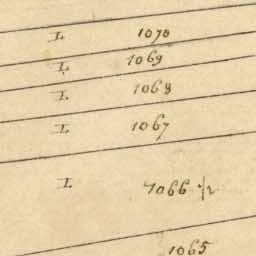 I 1070
I 1069
I 1068
I 1067
I 1066 1/2
1065